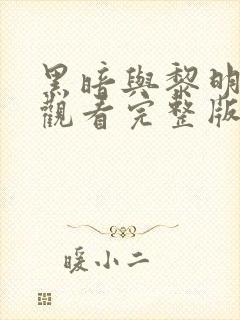 黑暗與黎明
觀看完整版
暖小二